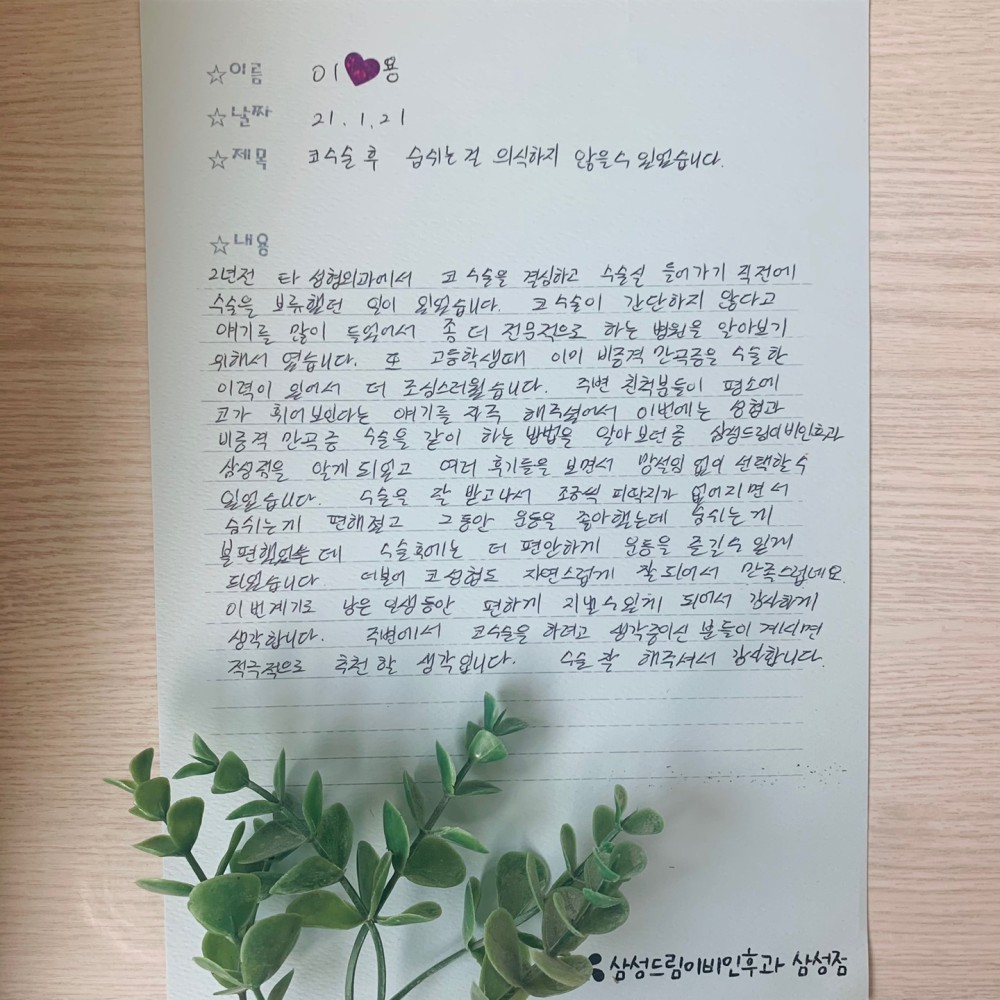 ☆이름 이 용
☆날짜 21.1.21
☆제목 코수술 후 숨쉬는걸 의식하지 않을수 있었습니다.
☆내용
2년전 타 성형외과에서 코 수술을 결심하고 수술실 들어가기 직전에
수술을 보류했던 일이 있었습니다. 코 수술이 간단하지 않다고
얘기를 많이 들었어서 좀 더 전문적으로 하는 병원을 알아보기
위해서 였습니다. 또 고등학생때 이미 비중격 만곡증을 수술한
이력이 있어서 더 조심스러웠습니다. 주변 친척분들이 평소에
코가 휘어보인다는 얘기를 자주 해주셨어서 이번에는 성형과
비중격 만곡증 수술을 같이 하는 방법을 알아보던중 삼성드림이비인후과
삼성점을 알게 되었고 여러 후기들을 보면서 망설임 없이 선택할수
있었습니다. 수술을 잘 받고나서 조금씩 피딱지가 없어지면서
숨쉬는게 편해졌고 그동안 운동을 좋아했는데 숨쉬는게
불편했었는데 수술후에는 더 편안하게 운동을 즐길수 있게
되었습니다 더불어 코성형도 자연스럽게 잘되어서 만족스럽네요.
이번계기로 남은 인생동안 편하게 지낼수있게 되어서 감사하게
생각합니다. 주변에서 코수술을 하려고 생각중이신 분들이 계시면
적극적으로 추천할 생각입니다. 수술 잘 해주셔서 감사합니다.
삼성드림이비인후과 삼성점